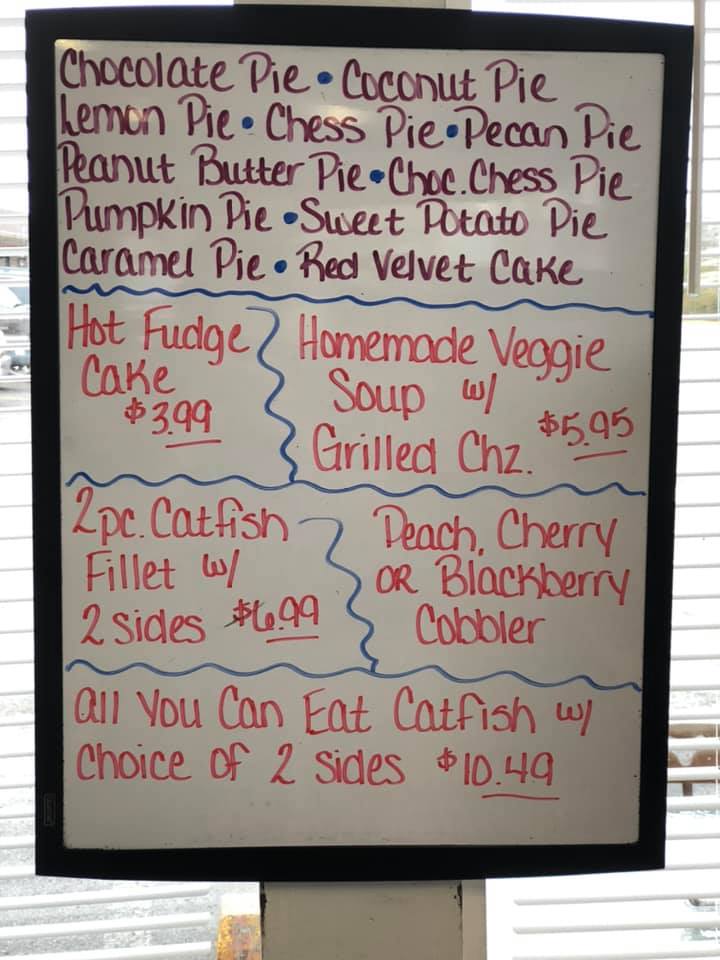 Chocolate Pie • Coconut Pie
Lemon Pie • Chess Pie • Pecan Pie
Peanut Butter Pie • Choc. Chess Pie
Pumpkin Pie • Sweet Potato Pie
Caramel Pie • Red Velvet Cake
Hot Fudge
Cake
$3.99
Homemade Veggie
Soup w/
Grilled Chz. $5.95
2pc. Catfish
Fillet w/
2 sides $6.99
Peach, Cherry
OR Blackberry
Cobbler
all You Can Eat Catfish w/
choice of 2 sides $10.49